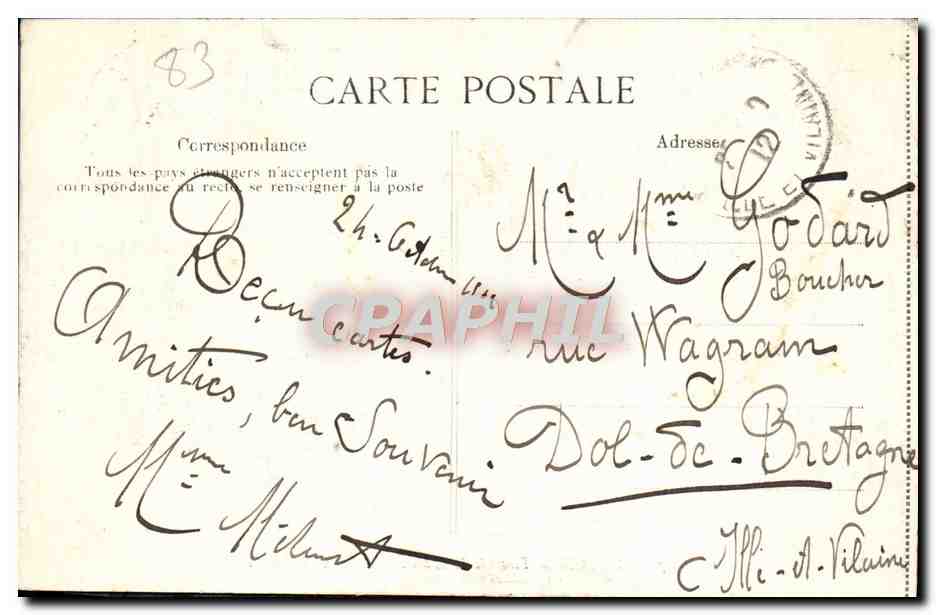 83
CARTE POSTALE
Correspondance
Tous les pays étrangers n'acceptent pas la
correspondance au recto, se renseigner à la poste
24 - Octobre
Reçu cartes.
Amitiés, bon Souvenir
Mme
Adresse
Mr & Mme Godard
Boucher
rue Wagram
Dol-de-Bretagne
Ille-et-Vilaine
CPAPHIL
12